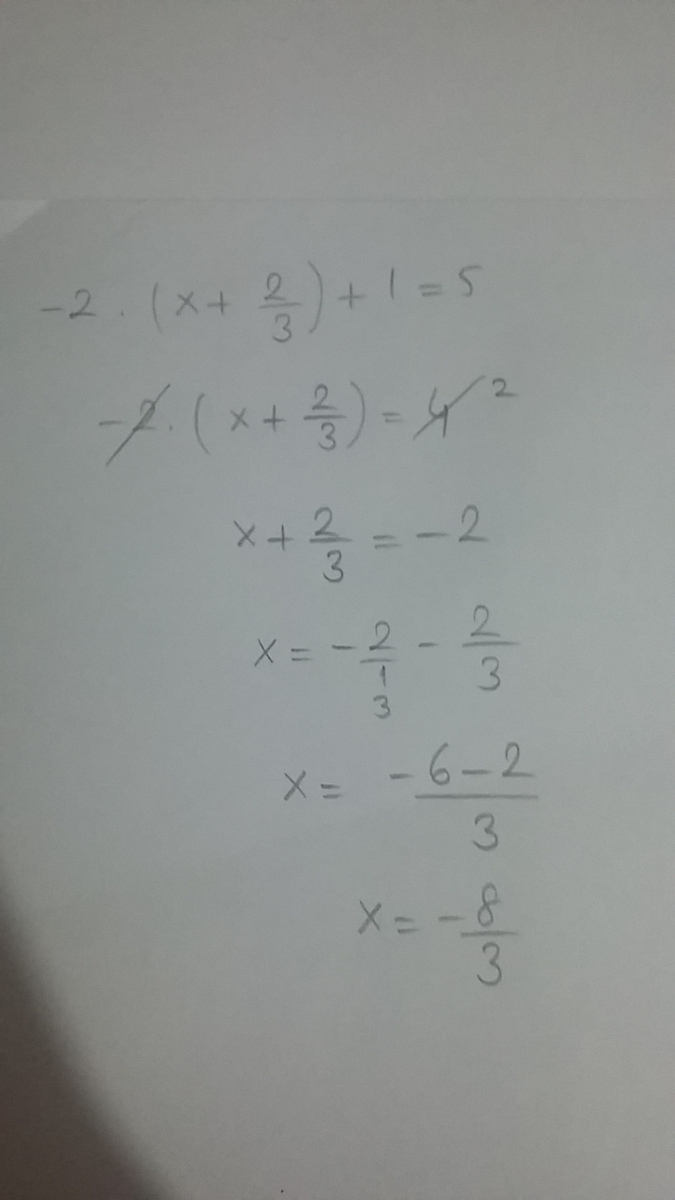 -2 . (x + 2/3) + 1 = 5
-2 . (x + 2/3) = 4 2
x + 2/3 = -2
x = -2/1 - 2/3
3
x = -6-2/3
x = -8/3